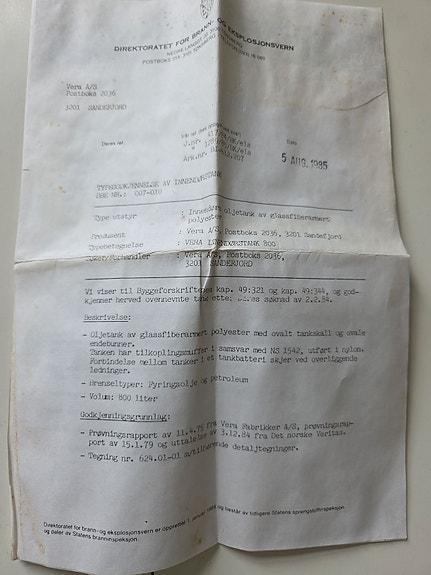 DIREKTORATET FOR BRANN- OG EKSPLOSJONSVERN
NEDRE LANGGT
POSTBOKS 355 3101 TØNSBERG
Vera A/S
Postboks 2036
3201 SANDEFJORD
Deres ref
Vår ref (bes oppgitt ved svar)
Dato
J.nr.
Ark.nr.
5 AUG. 1985
TYPEGODKJENNELSE AV INNENDØRSTANK
DBE NR.: 007-010
Type utstyr : Innendørs oljetank av glassfiberarmert
polyester
Produsent : Vera A/S, Postboks 2036, 3201 Sandefjord
Typebetegnelse : VERA INNENDØRSTANK 800
Søker/Forhandler : Vera A/S, Postboks 2036,
3201 SANDEFJORD
Vi viser til Byggeforskriftenes kap. 49:321 og kap. 49:344, og god-
kjenner herved ovennevnte tank etter Deres søknad av 2.2.84.
Beskrivelse:
- Oljetank av glassfiberarmert polyester med ovalt tankskall og ovale
endebunner.
Tanken har tilkoplingsmuffer i samsvar med NS 1542, utført i nylon.
Forbindelse mellom tanker i et tankbatteri skjer ved overliggende
ledninger.
- Brenseltyper: Fyringsolje og petroleum
- Volum: 800 liter
Godkjenningsgrunnlag:
- Prøvningsrapport av 11.4.75 fra Vera Fabrikker A/S, prøvningsrap-
port av 15.1.79 og uttalelse av 3.12.84 fra Det norske Veritas.
- Tegning nr. 624.01-01 m/tilhørende detaljtegninger.
Direktoratet for brann- og eksplosjonsvern er opprettet 1. januar og består av tidligere Statens sprengstoffinspeksjon
og deler av Statens branninspeksjon.